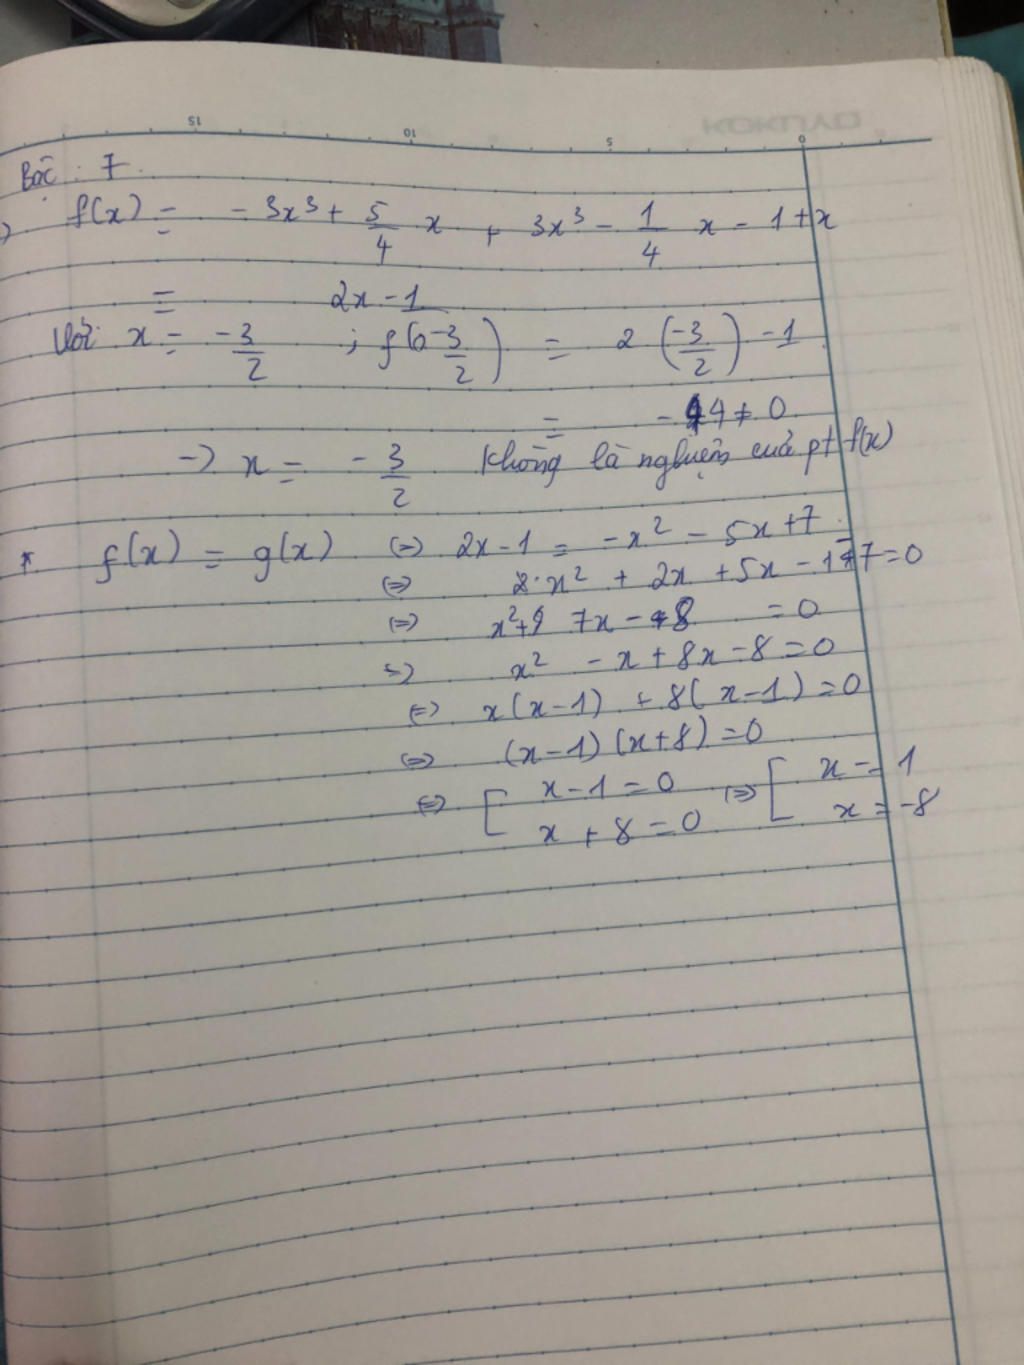 15 10 5 0
KOKUYO
Bậc : 7.
f(x) = - 3x³ + 5/4 x + 3x³ - 1/4 x - 1 + x
= 2x - 1
Với x = -3/2 ; f(-3/2) = 2 (-3/2) - 1
= - 4 ≠ 0
-> x = - 3/2 không là nghiệm của pt f(x)
* f(x) = g(x) (=) 2x - 1 = -x² - 5x + 7
(=) x² + 2x + 5x - 1 - 7 = 0
(=) x² + 7x - 8 = 0
=) x² - x + 8x - 8 = 0
(=) x(x-1) + 8(x-1) = 0
(=) (x-1) (x+8) = 0
(=) [ x - 1 = 0 (=) [ x = 1
x + 8 = 0 x = -8